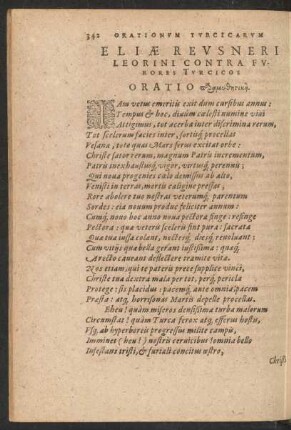 342 ORATIONVM TVRCICARVM
ELIÆ REVSNERI
LEORINI CONTRA FV-
RORES TVRCICOS
ORATIO
IAm vetus emeritis exit dum cursibus annus:
Tempus & hoc, diuûm cælesti numine visi
Attigimus, tot acerba inter discrimina rerum,
Tot scelerum facies inter, sortisq́; procellas
Vesana, tota quas Mars ferus excitat orbe:
Christe sator rerum, magnum Patris incrementum,
Patris inexhaustiq́; vigor, virtusq́; perennis:
Qui noua progenies cælo demissus ab alto,
Venisti in terras, mortis caligine pressas:
Rore abolere tuo nostras veterumq́; parentum
Sordes: eia nouum produc feliciter annum:
Cumq́; nouo hoc anno noua pectora finge: refinge
Pectora: qua veteris sceleris sint pura: sacrata
Qua tua iussa colant, nocteq́; dieq́; reuoluant:
Cum vitijs quæ bella gerant iustissima: quaq́;
Arcto caueant deflectere tramite vitæ.
Nos etiam, qui te patris prece supplice vinci,
Christe tua dextra mala per tot, perq́; pericla
Protege: sis placidus: pacemq́; ante omnia pacem
Præsta: atq; horrisonas Martis depelle procellas.
Eheu! quàm miseros densissima turba malorum
Circumstat! quàm Turca ferox atq; efferus hostis,
Vsq; ab hyperboreis progressus milite campis,
Imminet (heu!) nostris ceruicibus! omnia bello
Infestans tristi, & furiali concitus œstro,
Christ